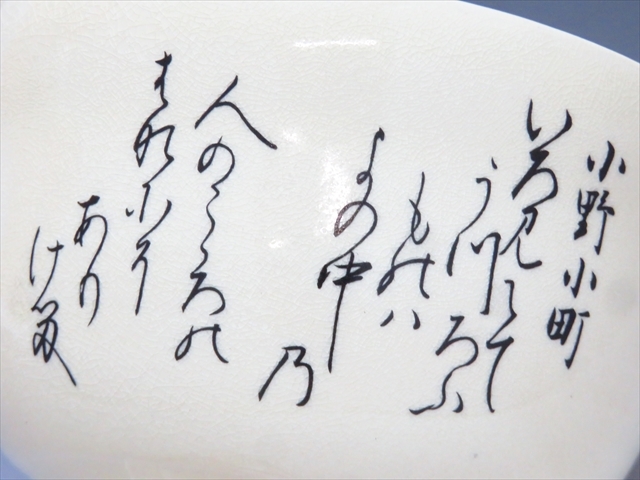 小野小町
いろ見えて
うつろふ
ものハ
よの中
乃
人のこゝろの
はな尓曽
あり
け留